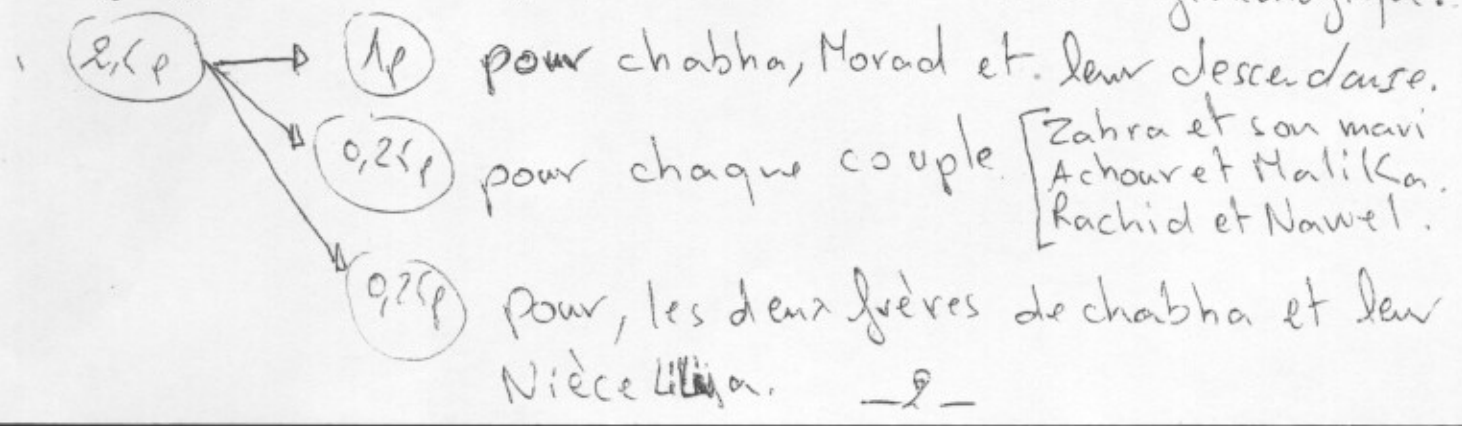 2,5p 1p pour chabha, Morad et leur descendanse.
0,25p pour chaque couple [Zahra et son mari
Achour et Malika.
Rachid et Nawel.
0,25p pour, les deux frères de chabha et leur
Nièce
_2_